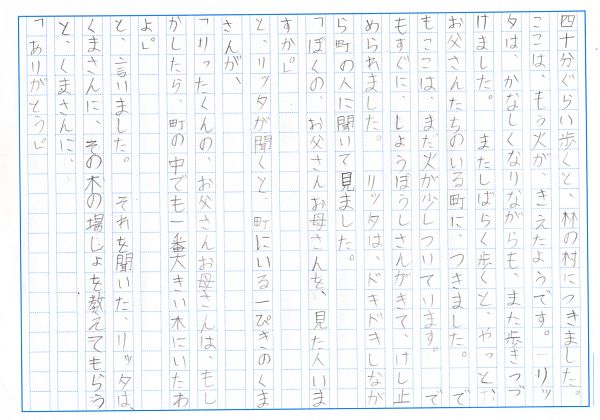 四十分ぐらい歩くと、林の村につきました。
ここは、もう火が、きえたようです。リッ
タは、かなしくなりながらも、また歩きつづ
けました。　またしばらく歩くと、やっと、
お父さんたちのいる町に、つきました。　で
もここは、まだ火が少しついています。　で
もすぐに、しょうぼうしさんがきて、けし止
められました。　リッタは、ドキドキしなが
ら町の人に聞いて見ました。
「ぼくの、お父さんお母さんを、見た人いま
すか。」
と、リッタが聞くと、町にいる一ぴきのくま
さんが、
「りったくんの、お父さんお母さんは、もし
かしたら、町の中でも一番大きい木にいたわ
よ。」
と、言いました。　それを聞いた、リッタは、
くまさんに、その木の場しょを教えてもらう
と、くまさんに、
「ありがとう。」